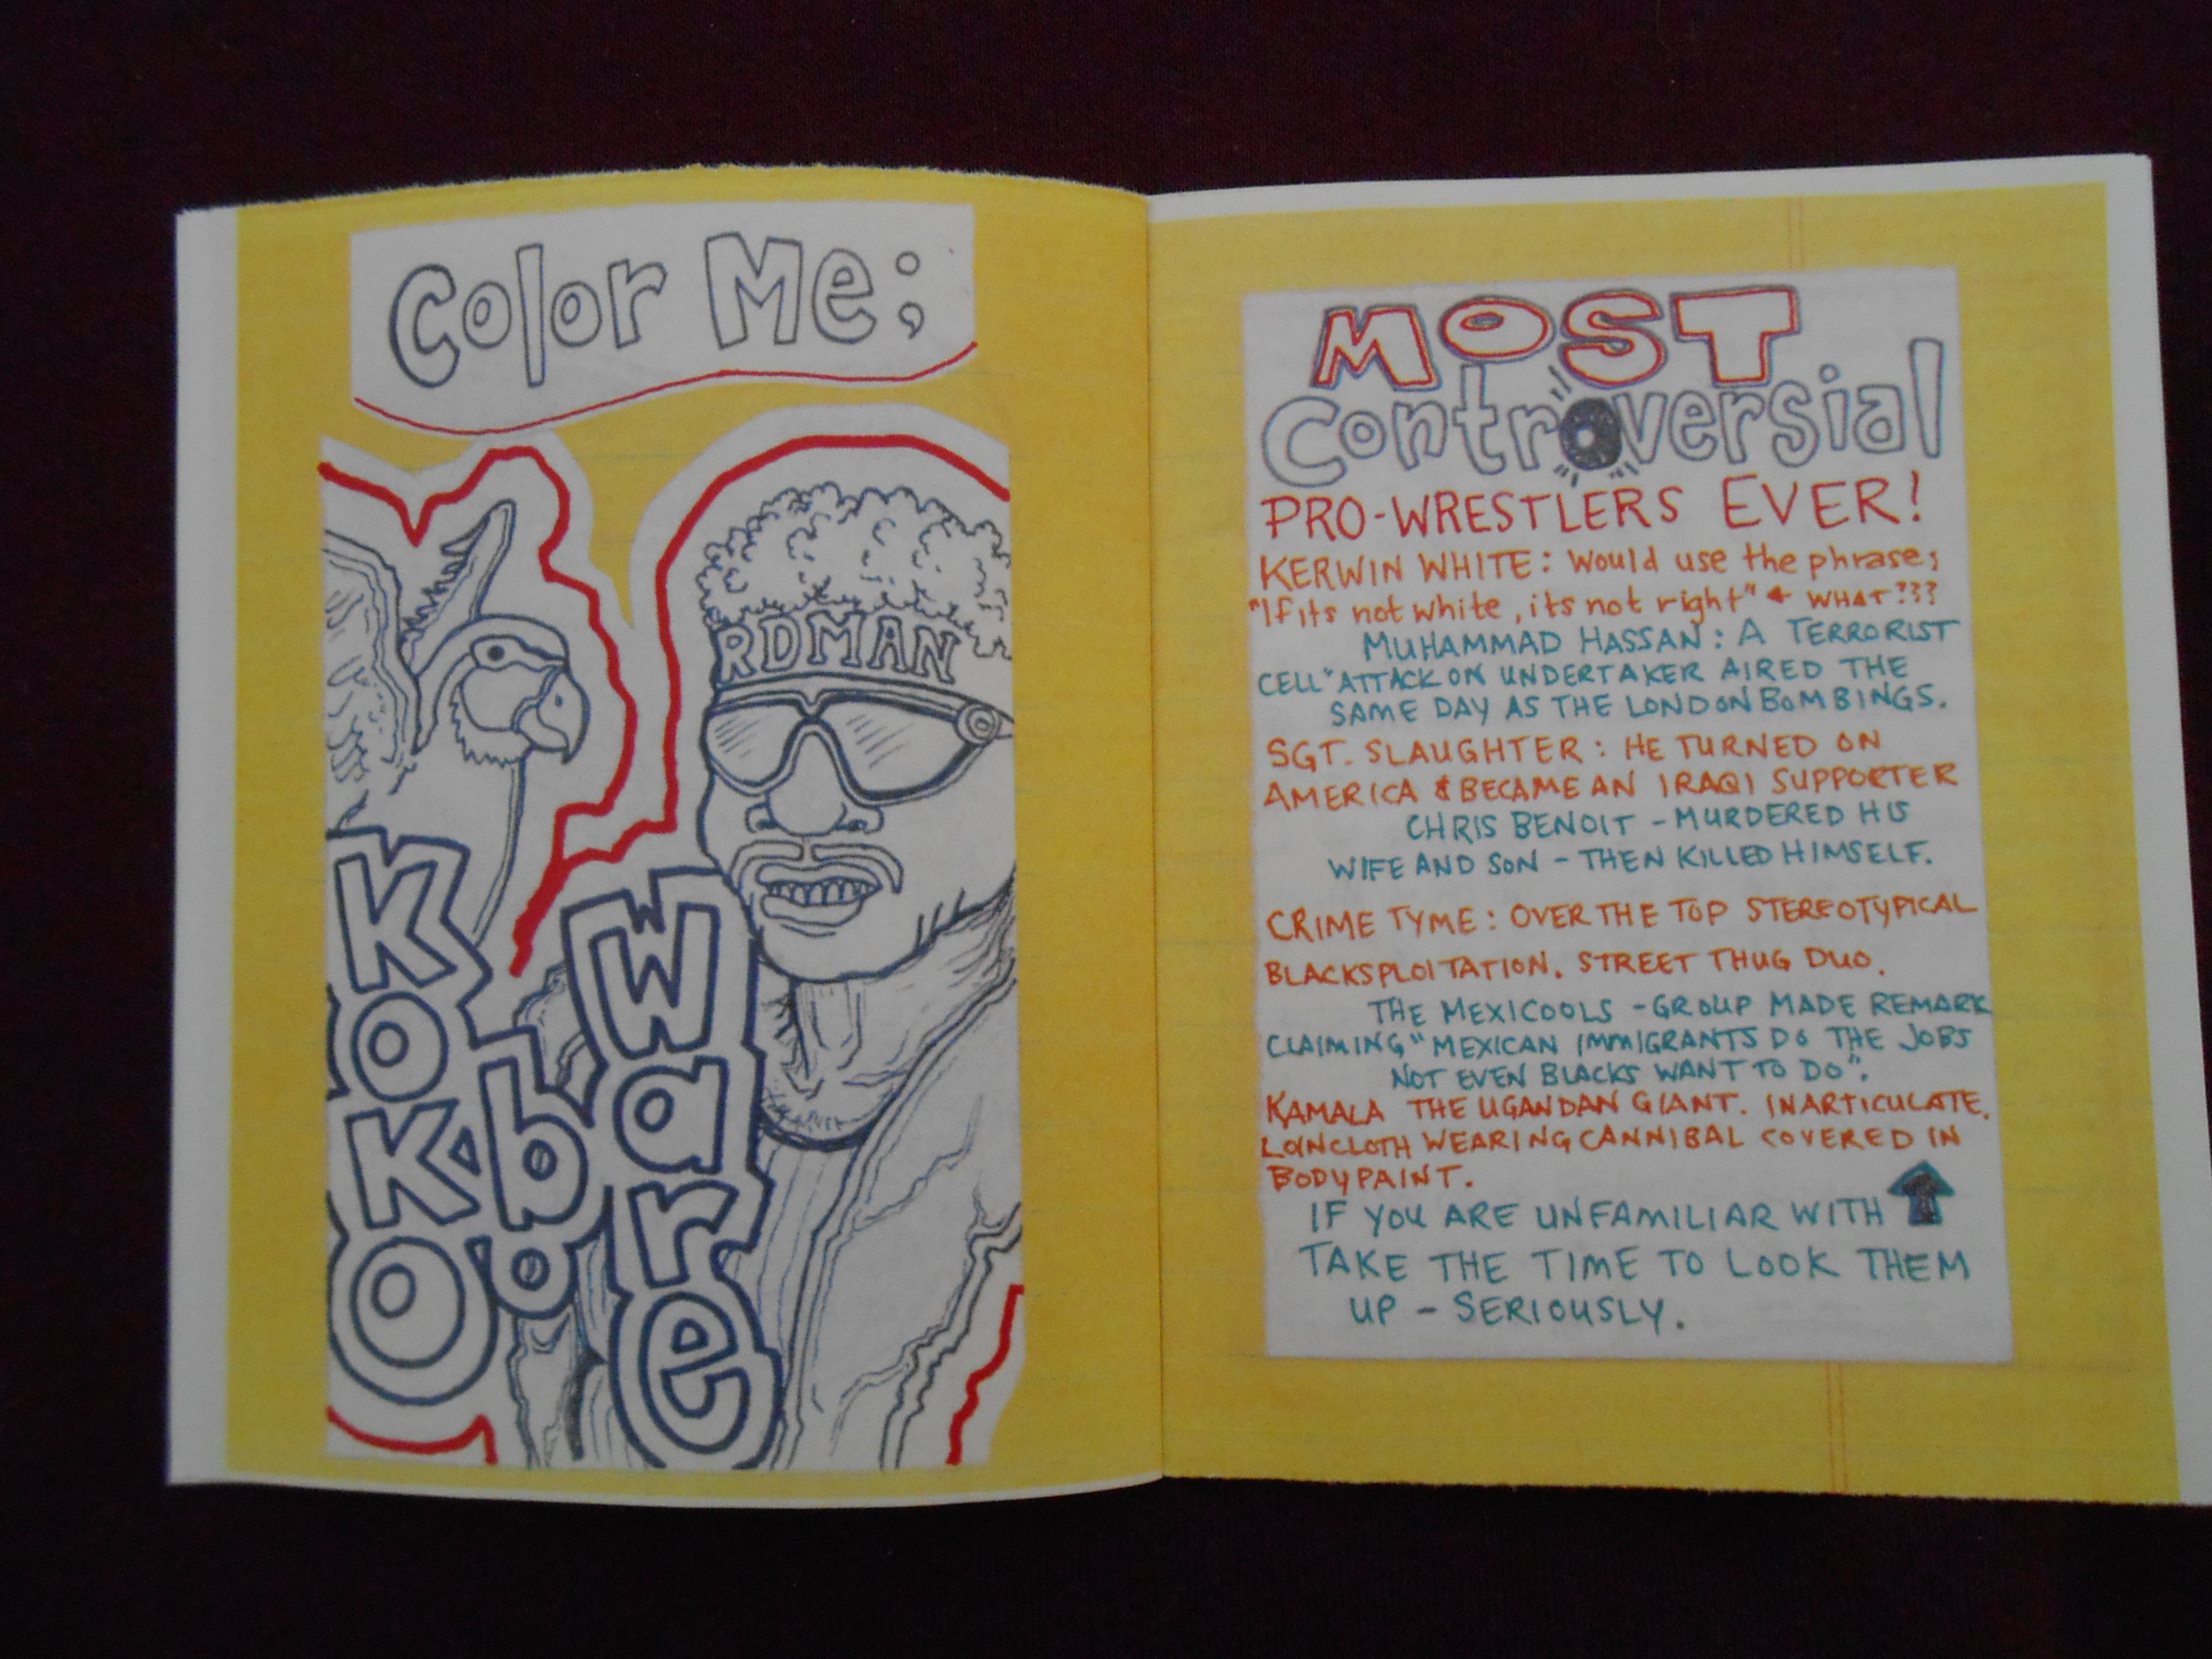 Color Me;
RDMAN
KoKo
b
o
Ware
MOST
Controversial
PRO-WRESTLERS EVER!
KERWIN WHITE: Would use the phrase;
"If its not white, its not right" WHAT???
MUHAMMAD HASSAN: A TERRORIST
CELL" ATTACK ON UNDERTAKER AIRED THE
SAME DAY AS THE LONDON BOMBINGS.
SGT. SLAUGHTER: HE TURNED ON
AMERICA & BECAME AN IRAQI SUPPORTER
CHRIS BENOIT - MURDERED HIS
WIFE AND SON - THEN KILLED HIMSELF.
CRIME TYME: OVER THE TOP STEREOTYPICAL
BLACKSPLOITATION. STREET THUG DUO.
THE MEXICOOLS - GROUP MADE REMARK
CLAIMING, "MEXICAN IMMIGRANTS DO THE JOBS
NOT EVEN BLACKS WANT TO DO".
KAMALA THE UGANDAN GIANT. INARTICULATE,
LOINCLOTH WEARING CANNIBAL COVERED IN
BODY PAINT.
IF YOU ARE UNFAMILIAR WITH
TAKE THE TIME TO LOOK THEM
UP - SERIOUSLY.